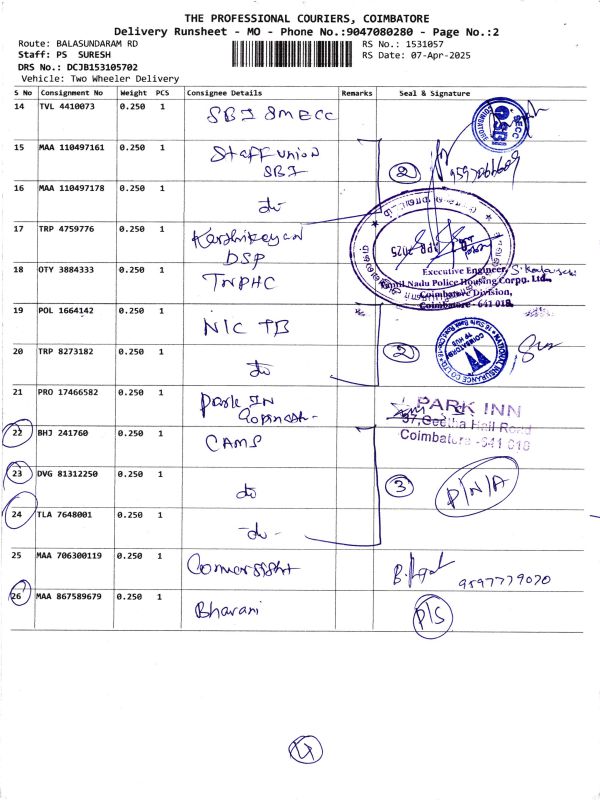 THE PROFESSIONAL COURIERS, COIMBATORE
Delivery Runsheet - MO - Phone No.:9047080280 - Page No.:2
Route: BALASUNDARAM RD
RS No.: 1531057
Staff: PS SURESH
RS Date: 07-Apr-2025
DRS No.: DCJB153105702
Vehicle: Two Wheeler Delivery
S No Consignment No Weight PCS Consignee Details Remarks Seal & Signature
14 TVL 4410073 0.250 1 SBI SMECC
15 MAA 110497161 0.250 1 Staff union
SBI
2
16 MAA 110497178 0.250 1 do
17 TRP 4759776 0.250 1 Karthikeyan
DSP
18 OTY 3884333 0.250 1 TNPHC
Executive Engineer,
Tamil Nadu Police Housing Corpn. Ltd.
Coimbatore Division,
Coimbatore - 641 018.
19 POL 1664142 0.250 1 NIC TB
20 TRP 8273182 0.250 1 do
2
21 PRO 17466582 0.250 1 Park IN
Gopinath-
PARK INN
37, Geetha Hall Road
Coimbatore -641 018
22 BHJ 241760 0.250 1 CAMS
23 DVG 81312250 0.250 1 do
3
P/N/A
24 TLA 7648001 0.250 1 -do-
25 MAA 706300119 0.250 1
9597779070
26 MAA 867589679 0.250 1 Bharani
P/S
4